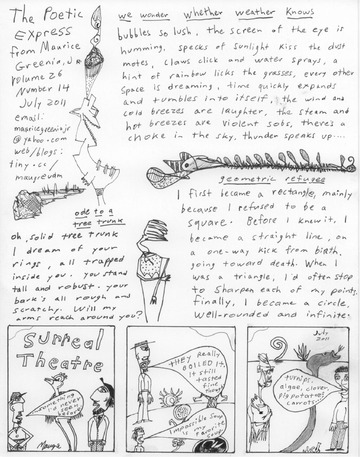 The Poetic
Express
from Maurice
Greenia, Jr
volume 26
Number 14
July 2011
email:
mauricegreeniajr
@yahoo.com
web/blogs:
tiny.cc/
maugrevdm
we wonder whether weather knows
bubbles so lush, the screen of the eye is
humming, specks of sunlight kiss the dust
motes, claws click and water sprays, a
hint of rainbow licks the grasses, every other
space is dreaming, time quickly expands
and tumbles into itself, the wind and
cold breezes are laughter, the steam and
hot breezes are violent sobs, there's a
choke in the sky, thunder speaks up...
ode to a
tree trunk
oh, solid tree trunk
I dream of your
rings, all trapped
inside you. you stand
tall and robust. your
bark's all rough and
scratchy. Will my
arms reach around you?
geometric refugee
I first became a rectangle, mainly
because I refused to be a
square. Before I knew it, I
became a straight line, on
a one-way kick from birth,
going toward death. When I
was a triangle, I'd often stop
to sharpen each of my points.
Finally, I became a circle,
well-rounded and infinite.
Surreal
Theatre
something
I'd never
seen
before
Maurice
they really
boiled it;
it still
tasted
fine
Impossible Soup
is my favorite
July
2011
turnips,
algae, clover,
fig, potatoes,
carrots